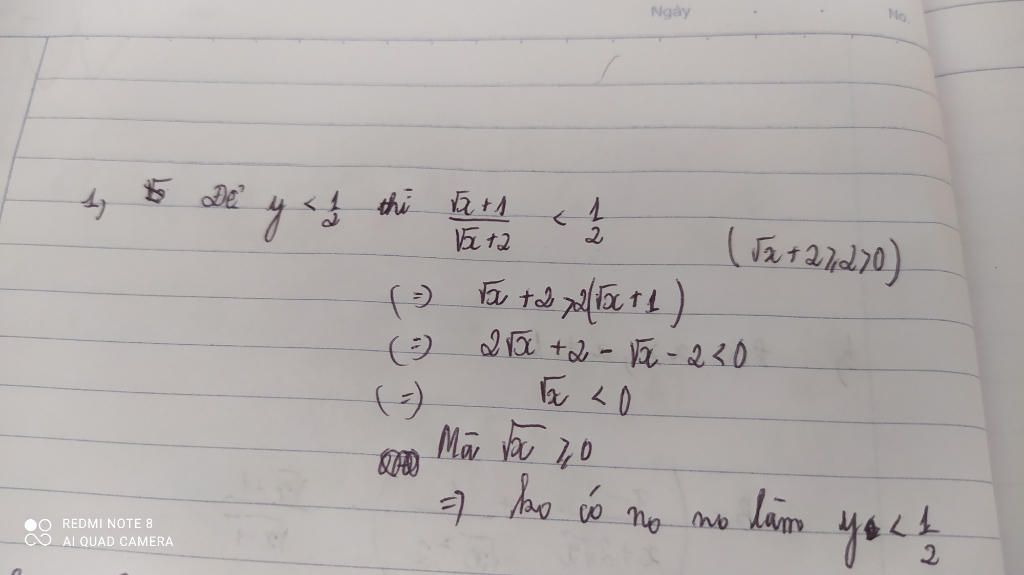 Ngày
No.
1, Để y < 1/2 thì (√x + 1)/(√x + 2) < 1/2 (√x + 2 ⩾ 2 > 0)
(=) √x + 2 > 2(√x + 1)
(=) 2√x + 2 - √x - 2 < 0
(=) √x < 0
Mà √x ⩾ 0
=> ko có no no làm y < 1/2
REDMI NOTE 8
AI QUAD CAMERA